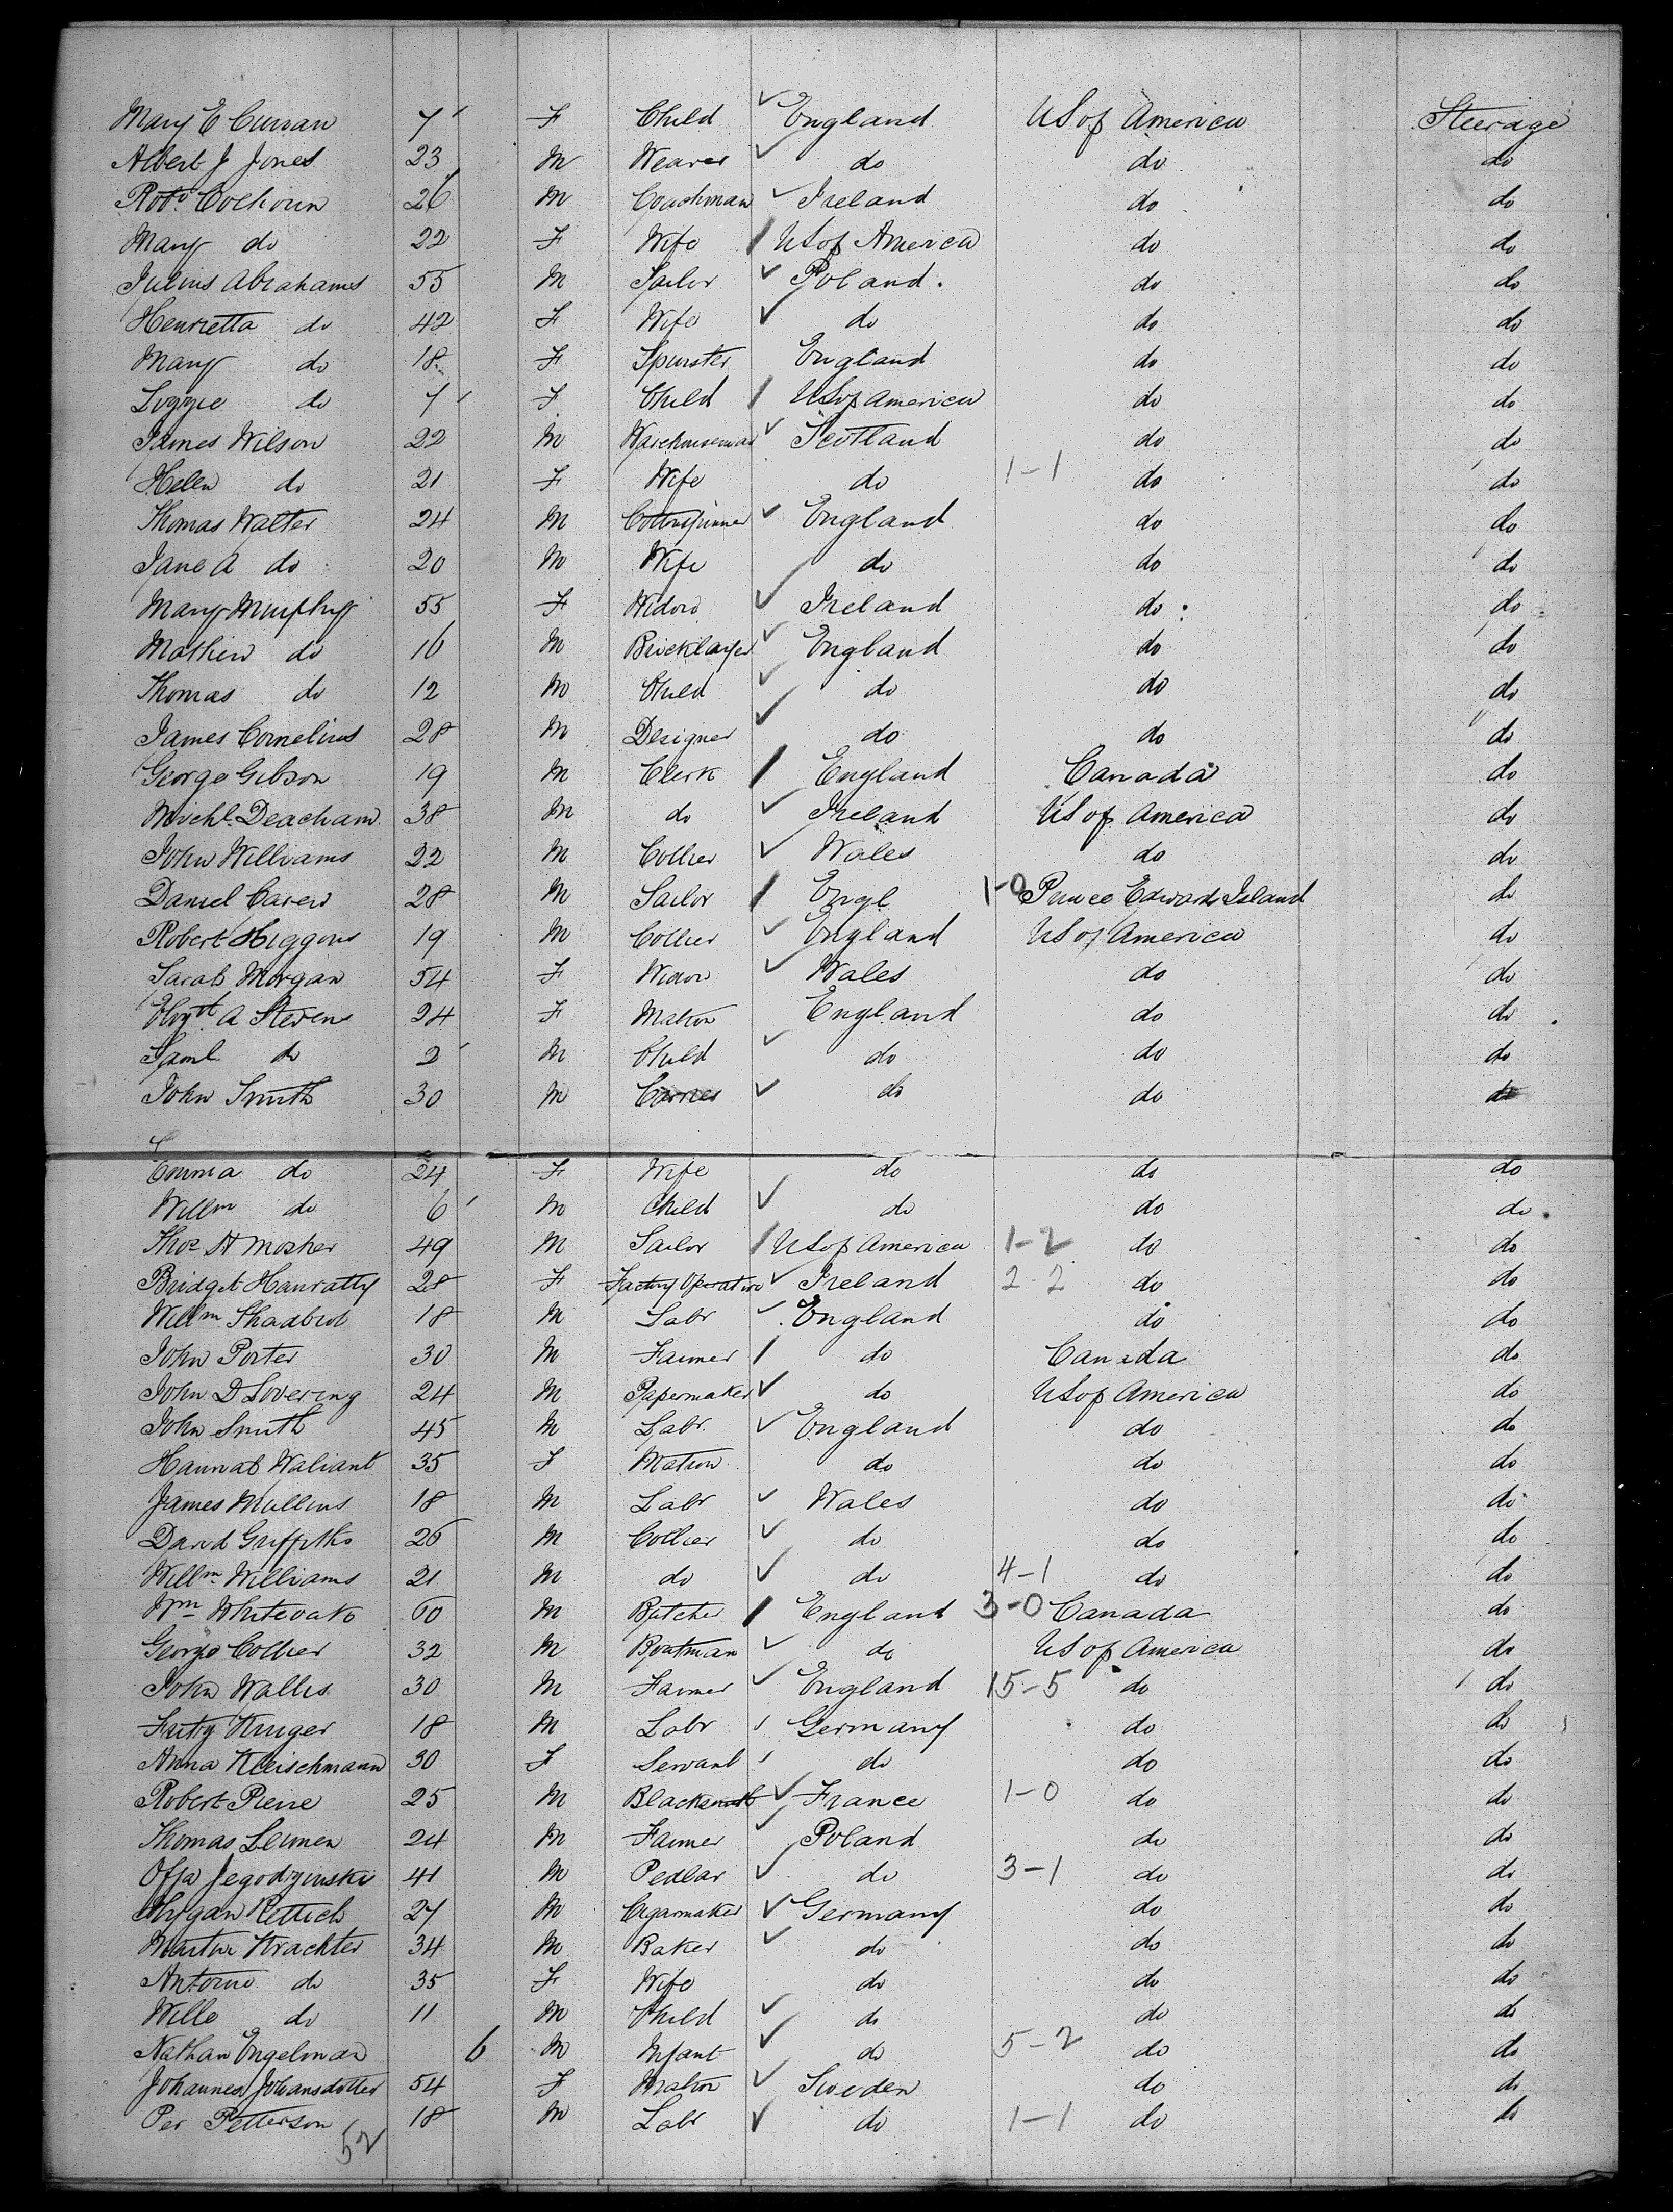 Mary E Curran 7 F Child England US of America Steerage
Albert J Jones 23 M Weaver do do do
Robt. Colhoun 26 M Coachman Ireland do do
Mary do 22 F Wife US of America do do
Julius Abrahams 55 M Tailor Poland. do do
Henrietta do 42 F Wife do do do
Mary do 18 F Spinster England do do
Lizzie do 7 F Child US of America do do
James Wilson 22 M Warehouseman Scotland do do
Helen do 21 F Wife do 1-1 do do
Thomas Walter 24 M Cottonspinner England do do
Jane A do 20 M Wife do do do
Mary Murphy 55 F Widow Ireland do do
Mathew do 16 M Bricklayer England do do
Thomas do 12 M Child do do do
James Cornelius 28 M Designer do do do
George Gibson 19 M Clerk England Canada do
Michl. Deacham 38 M do Ireland US of America do
John Williams 22 M Collier Wales do do
Daniel Carew 28 M Sailor Engl 1-0 Prince Edward Island do
Robert Higgons 19 M Collier England US of America do
Sarah Morgan 54 F Widow Wales do do
A Stevens 24 F Matron England do do
Saml do 2 M Child do do do
John Smith 30 M do do do
Emma do 24 F Wife do do do
Willm do 6 M Child do do do
Thos H Mosher 49 M Sailor US of America 1-2 do do
Bridget Hanratty 28 F Factory Operative Ireland 2-2 do do
Willm Shadbolt 18 M Labr England do do
John Porter 30 M Farmer do Canada do
John D Lovering 24 M Papermaker do US of America do
John Smith 45 M Labr. England do do
Hannah Waliant 35 F Matron do do do
James Mullins 18 M Labr Wales do do
David Griffiths 26 M Collier do do do
Willm Williams 21 M do do 4-1 do do
Wm 60 M Butcher England 3-0 Canada do
George Collier 32 M Boatman do US of America do
John Wallis 30 M Farmer England 15-5 do do
Fritz Kruger 18 M Labr Germany do do
Anna Kleischmann 30 F Servant do do do
Robert Pierre 25 M Blacksmith France 1-0 do do
Thomas Leimen 24 M Farmer Poland do do
Offa Jegodzinski 41 M Pedlar do 3-1 do do
Rettich 27 M Cigarmaker Germany do do
Martin Krachter 34 M Baker do do do
Antonie do 35 F Wife do do do
Wille do 11 M Child do do do
Nathan Engelman 6 M Infant do 5-2 do do
Johannes Johansdotter 54 F Matron Sweden do do
Per Petterson 18 M Labr do 1-1 do do
52